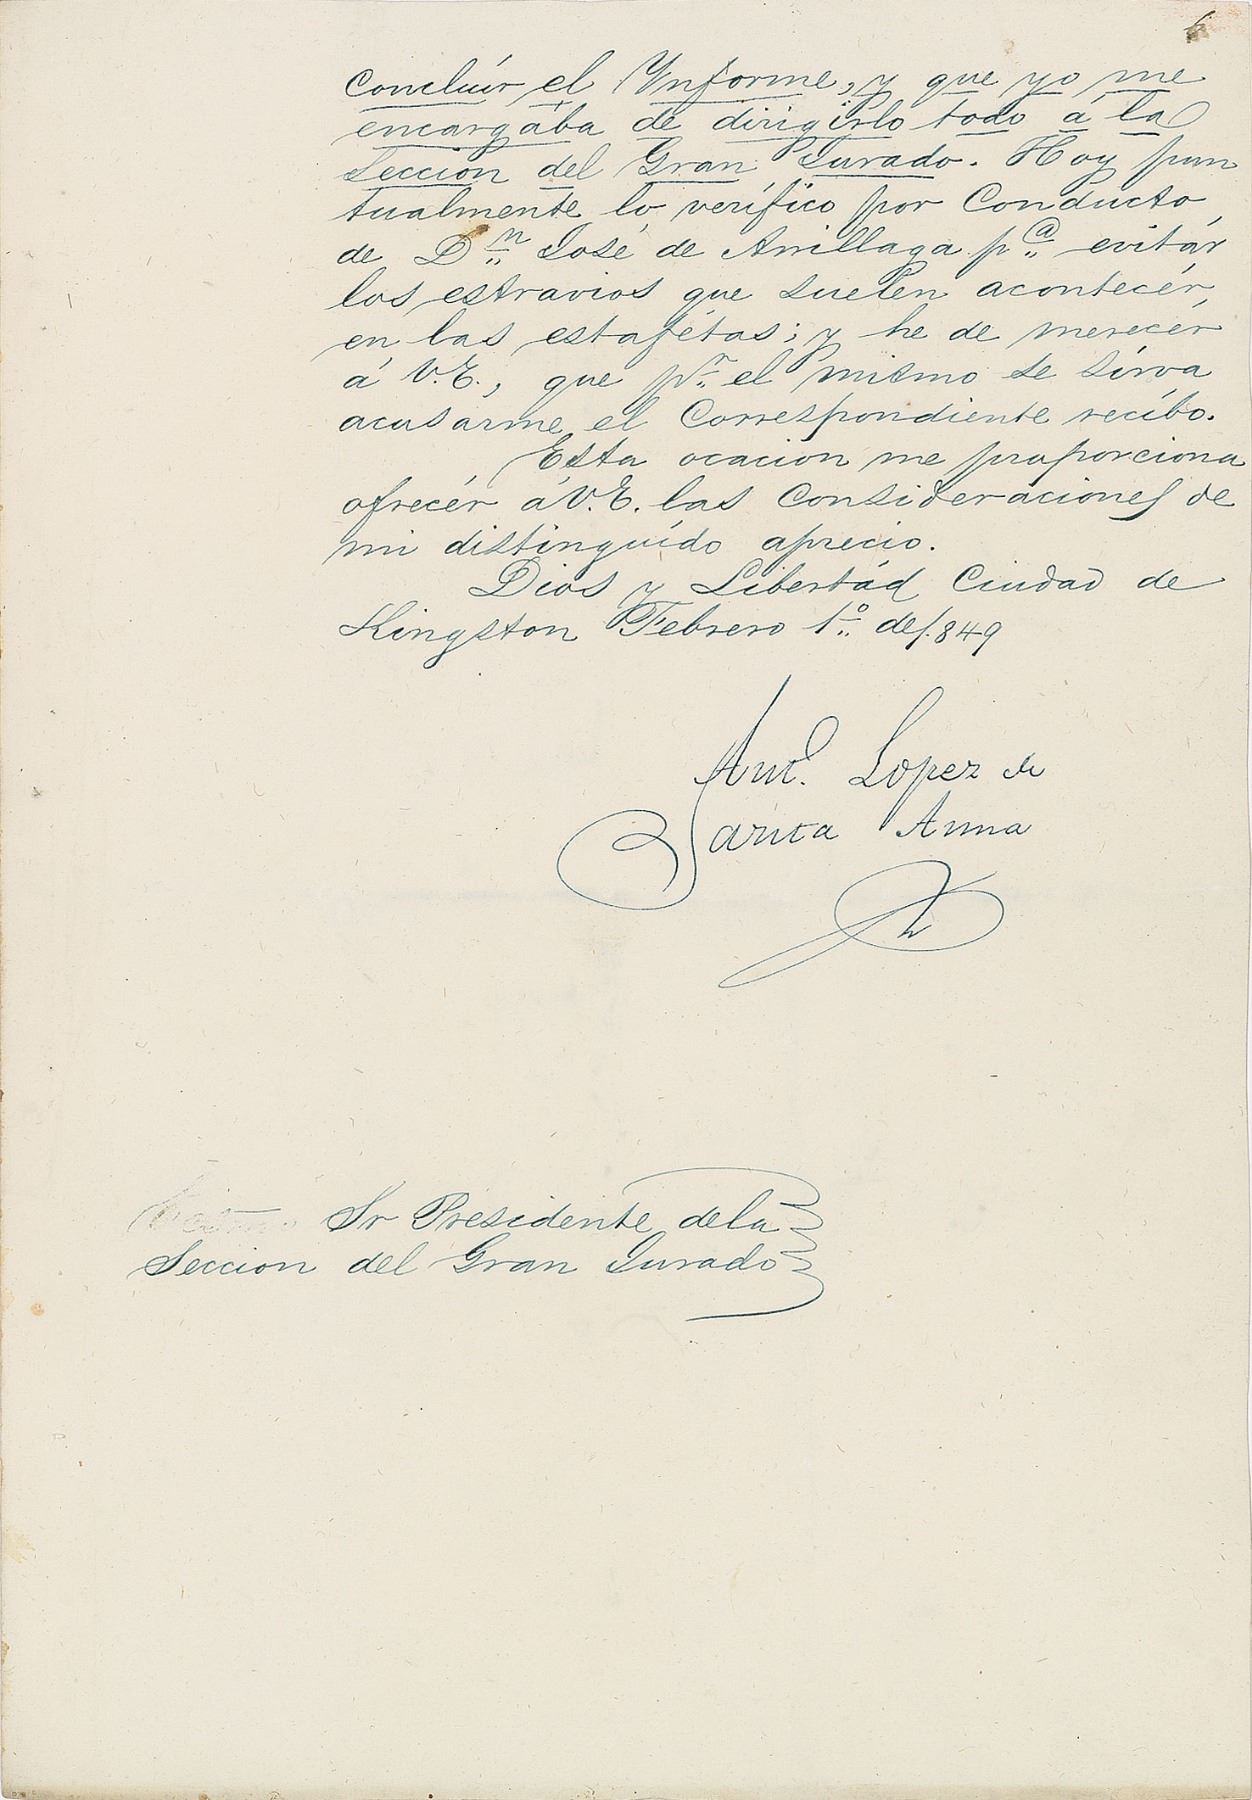 6
Concluír el Ynforme, y que yo me
encargaba de dirigirlo todo á la
Seccion del Gran Jurado. Hoy pun
tualmente lo verífico por Conducto
de D.n José de Arrillaga p.a evitár
los estravios que suelen acontecér,
en las estafétas; y he de merecér
á V.E., que p.r el mismo se sírva
acusarme el Correspondiente recíbo.
Esta ocacion me proporciona
ofrecér á V.E. las Consideraciones de
mi distinguído aprecio.
Dios y Libertád Ciudad de
Kingston Febrero 1.o de 1.849
Ant. Lopez de
Santa Anna
Sr Presidente de la
Seccion del Gran Jurado